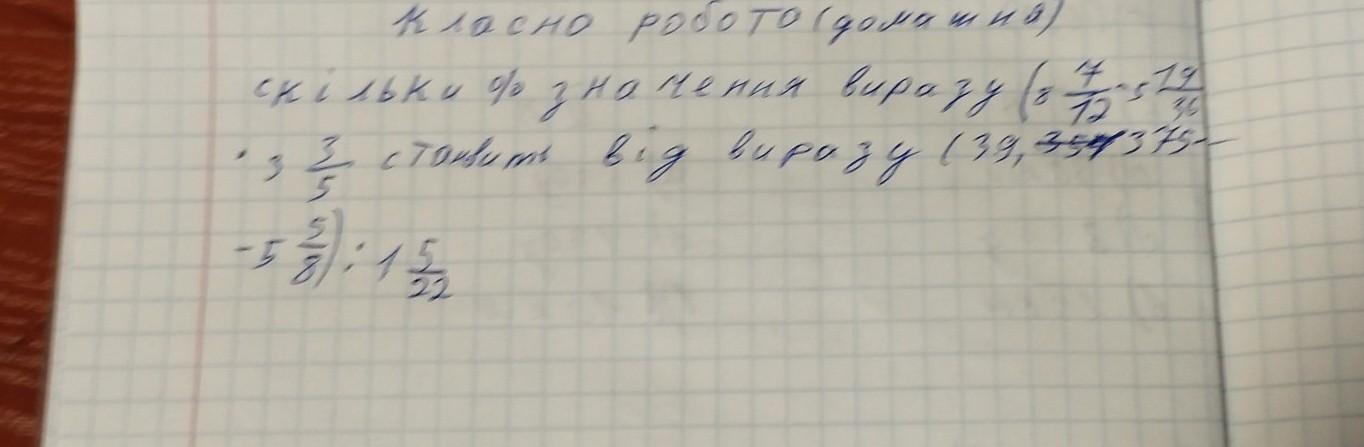 Класно робото (домашня)
скільки % значення виразу (8 7/12 - 5 19/36
· 3 3/5 становить від виразу (39, 375 -
- 5 5/8) : 1 5/22